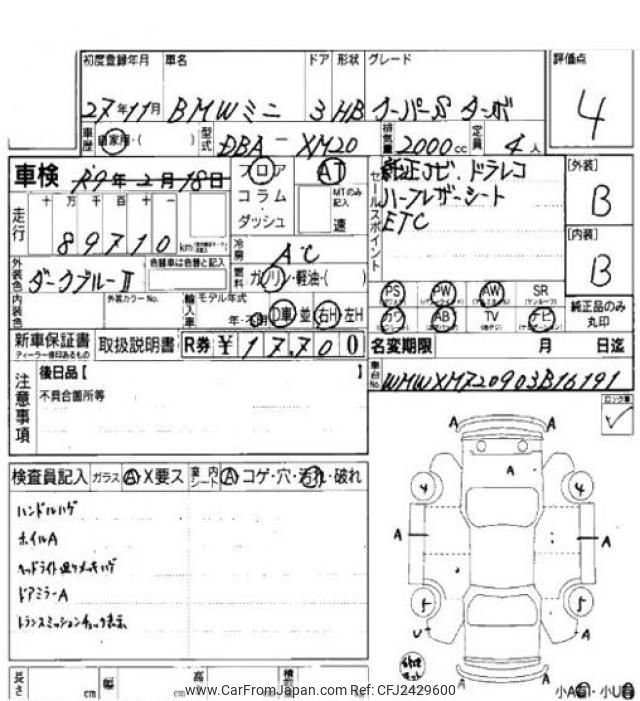 初度登録年月 車名 ドア 形状 グレード 評価点
27年11月 BMWミニ 3 HB クーパーS ターボ 4
車歴 自家用・( ) 型式 DBA-XM20 排気量 2000cc 定員 4人
車検 R9年2月18日 フロア AT
コラム MTのみ記入
ダッシュ 速
セールスポイント
純正ナビ.ドラレコ
ハーフレザーシート
ETC
[外装] B
[内装] B
走行 十 万 千 百 十 一
89710 km
冷房 AC
外装色 ダークブルーII 色替車は色替と記入
燃料 ガソリン・軽油・( )
内装色 外装カラーNo. 輸入車 モデル年式
年・不明 D車 並 右H 左H
PS PW AW SR
カワ AB TV ナビ
純正品のみ丸印
新車保証書 取扱説明書 R券 ¥ 17,700
ディーラー捺印あるもの
名変期限 月 日迄
車台No. WMWXM720903B16191
注意事項
後日品【 】
不具合箇所等
検査員記入 ガラス A・X要ス 室内シート A・コゲ・穴・汚れ・破れ
ハンドルハゲ
ホイルA
ヘッドライト廻りメッキハゲ
ドアミラーA
トランスミッションチェック表示
A A
A
4 4
A A
5 5
U A
A A
長さ cm 幅 cm 高
www.CarFromJapan.com Ref: CFJ2429600
小A・小U